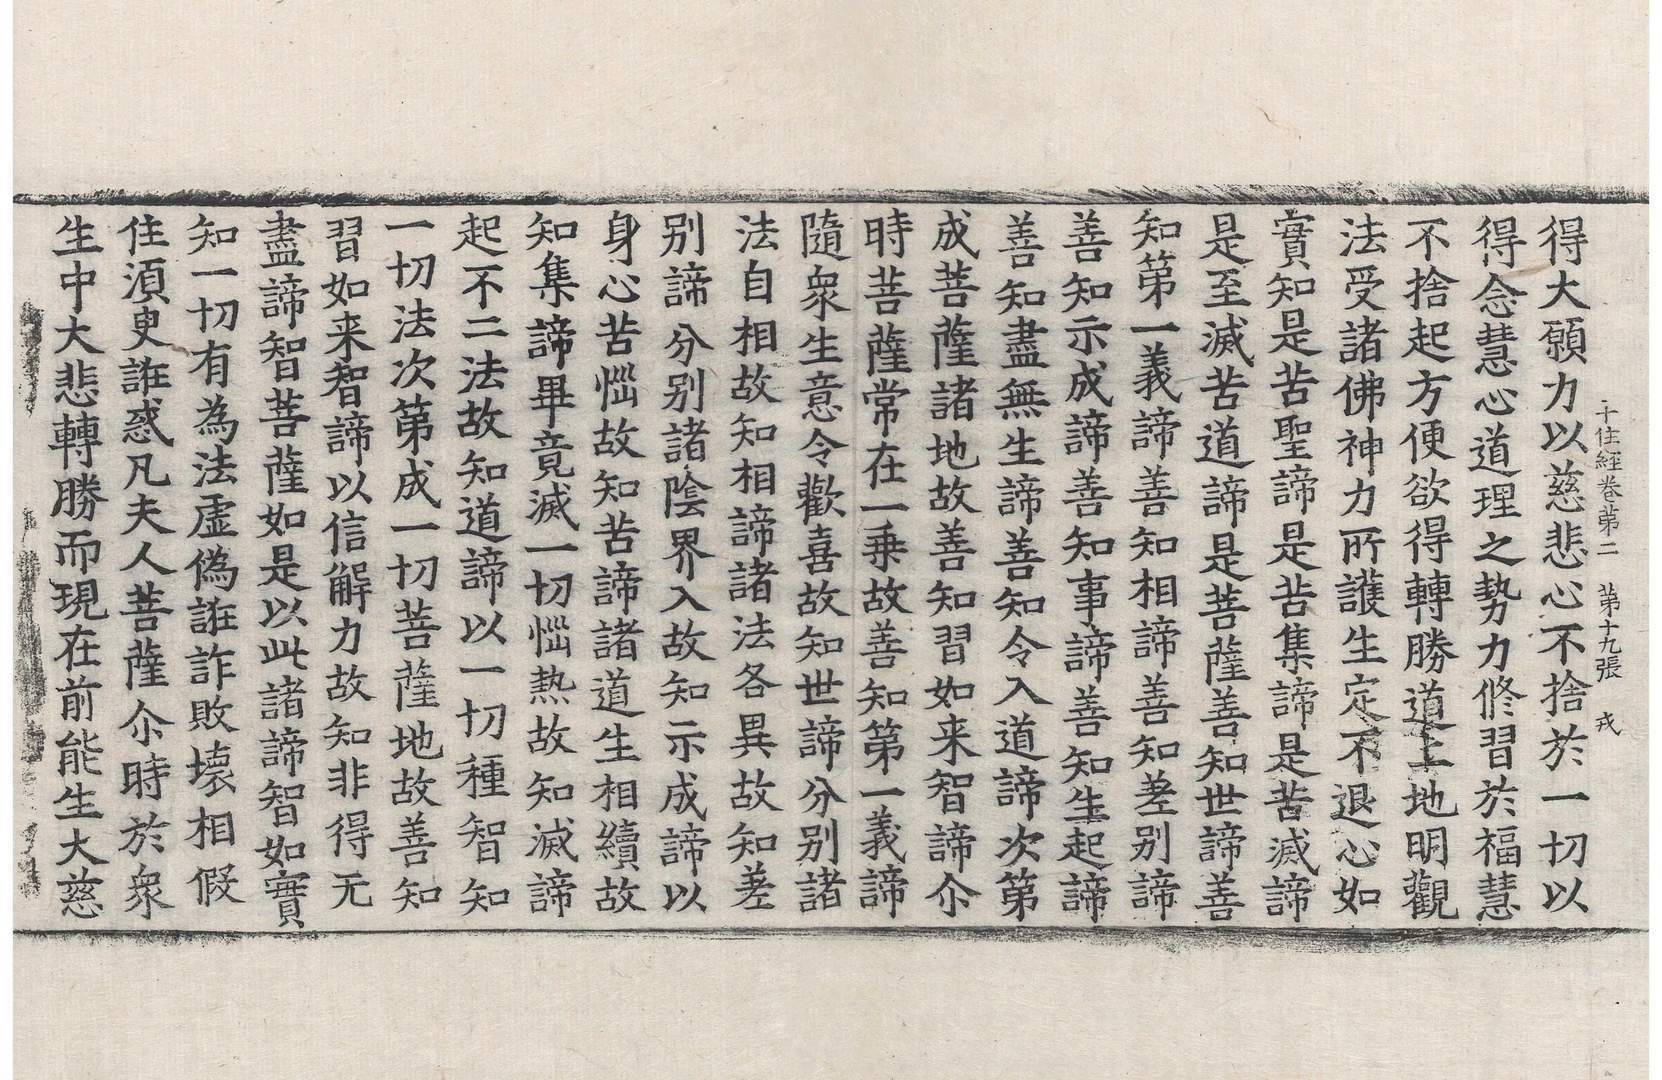 十住經卷第二　第十九張　戎
得大願力以慈悲心不捨於一切以
得念慧心道理之勢力修習於福慧
不捨起方便欲得轉勝道上地明觀
法受諸佛神力所護生定不退心如
實知是苦聖諦是苦集諦是苦滅諦
是至滅苦道諦是菩薩善知世諦善
知第一義諦善知相諦善知差别諦
善知示成諦善知事諦善知生起諦
善知盡無生諦善知令入道諦次第
成菩薩諸地故善知習如来智諦尒
時菩薩常在一乗故善知第一義諦
隨衆生意令歡喜故知世諦分别諸
法自相故知相諦諸法各異故知差
别諦分别諸陰界入故知示成諦以
身心苦惱故知苦諦諸道生相續故
知集諦畢竟滅一切惱热故知滅諦
起不二法故知道諦以一切種智知
一切法次第成一切菩薩地故善知
習如来智諦以信解力故知非得无
盡諦智菩薩如是以此諸諦智如實
知一切有為法虚偽誑詐敗壊相假
住須臾誑惑凡夫人菩薩尒時於衆
生中大悲轉勝而現在前能生大慈